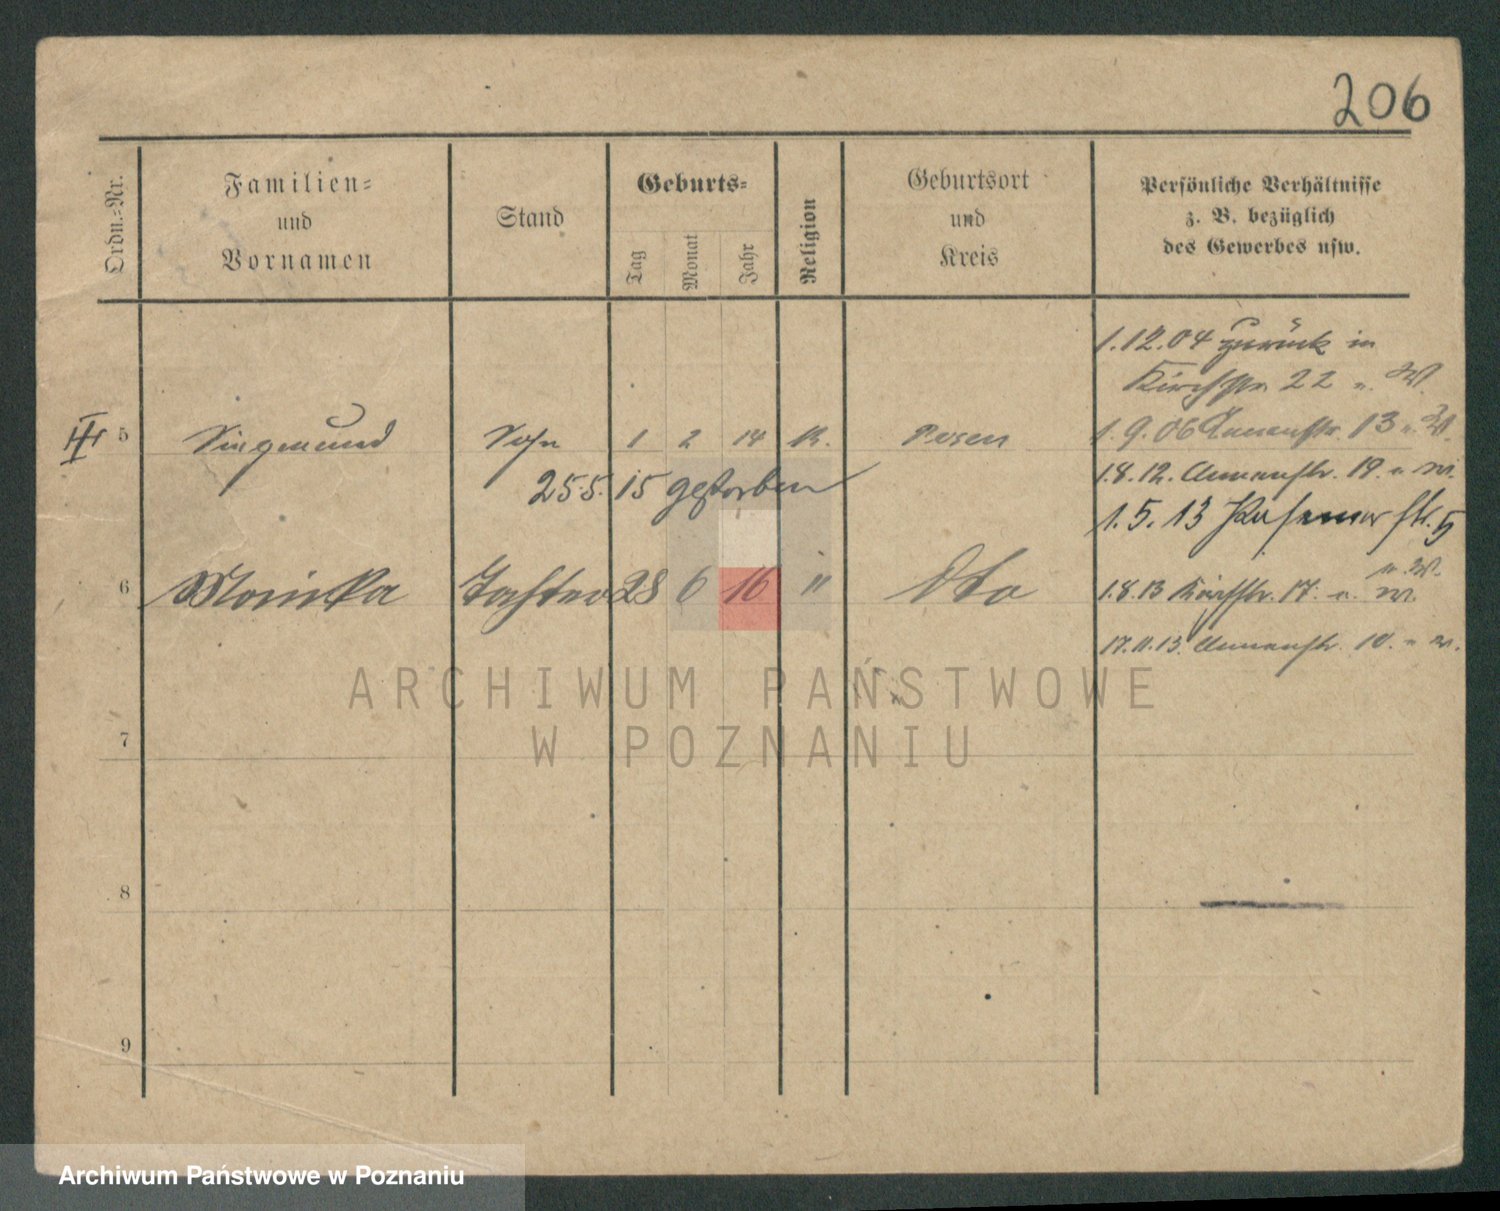 206
Ordn.=Nr.
Familien=
und
Vornamen
Stand
Geburts=
Tag
Monat
Jahr
Religion
Geburtsort
und
Kreis
Persönliche Verhältnisse
z. B. bezüglich
des Gewerbes usw.
1.12.04 zurück in
Kirchstr. 22 u. W.
III 5 Siegmund Sohn 1 2 14 K. Posen
1.9.06 Annenstr. 13 u. W.
25.5.15 gestorben
1.8.12. Annenstr. 19. u. W.
1.5.13 str. 5
u. W.
6 Monika Tochter 28 6 16 " Dto
1.8.13 Kirchstr. 17. u. W.
17.11.13. Annenstr. 10. u. W.
7
8
9
ARCHIWUM PAŃSTWOWE
W POZNANIU
Archiwum Państwowe w Poznaniu